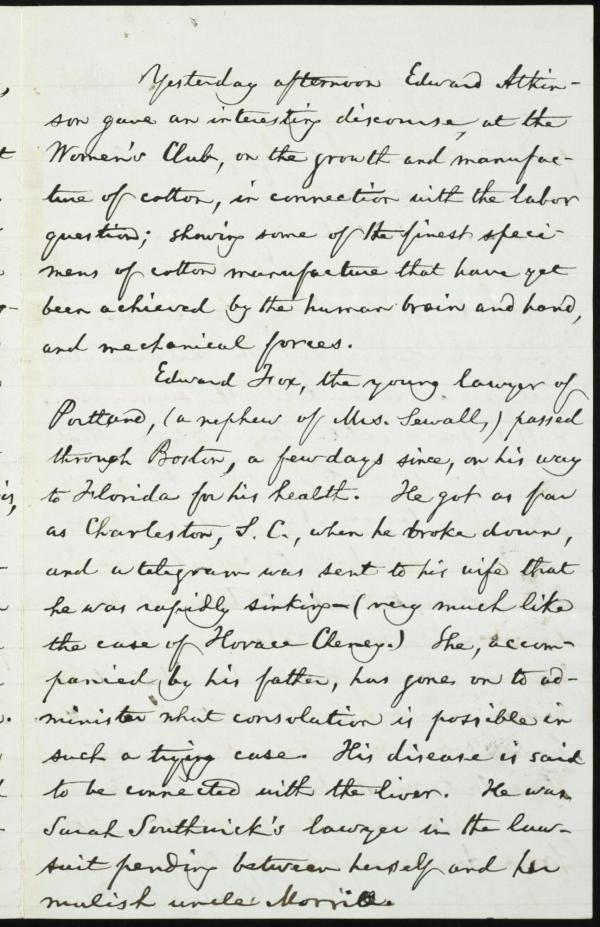 Yesterday afternoon Edward Atkin-
son gave an interesting discourse, at the
Women's Club, on the growth and manufac-
ture of cotton, in connection with the labor
question; showing some of the finest speci-
mens of cotton manufacture that have yet
been achieved by the human brain and hand,
and mechanical forces.
Edward Fox, the young lawyer of
Portland, (a nephew of Mrs. Sewall,) passed
through Boston, a few days since, on his way
to Florida for his health. He got as far
as Charleston, S. C., when he broke down,
and a telegram was sent to his wife that
he was rapidly sinking—(very much like
the case of Horace Cheney.) She, accom-
panied by his father, has gone on to ad-
minister what consolation is possible in
such a trying case. His disease is said
to be connected with the liver. He was
Sarah Southwick's lawyer in the law-
suit pending between herself and her
mulish uncle Morrill.